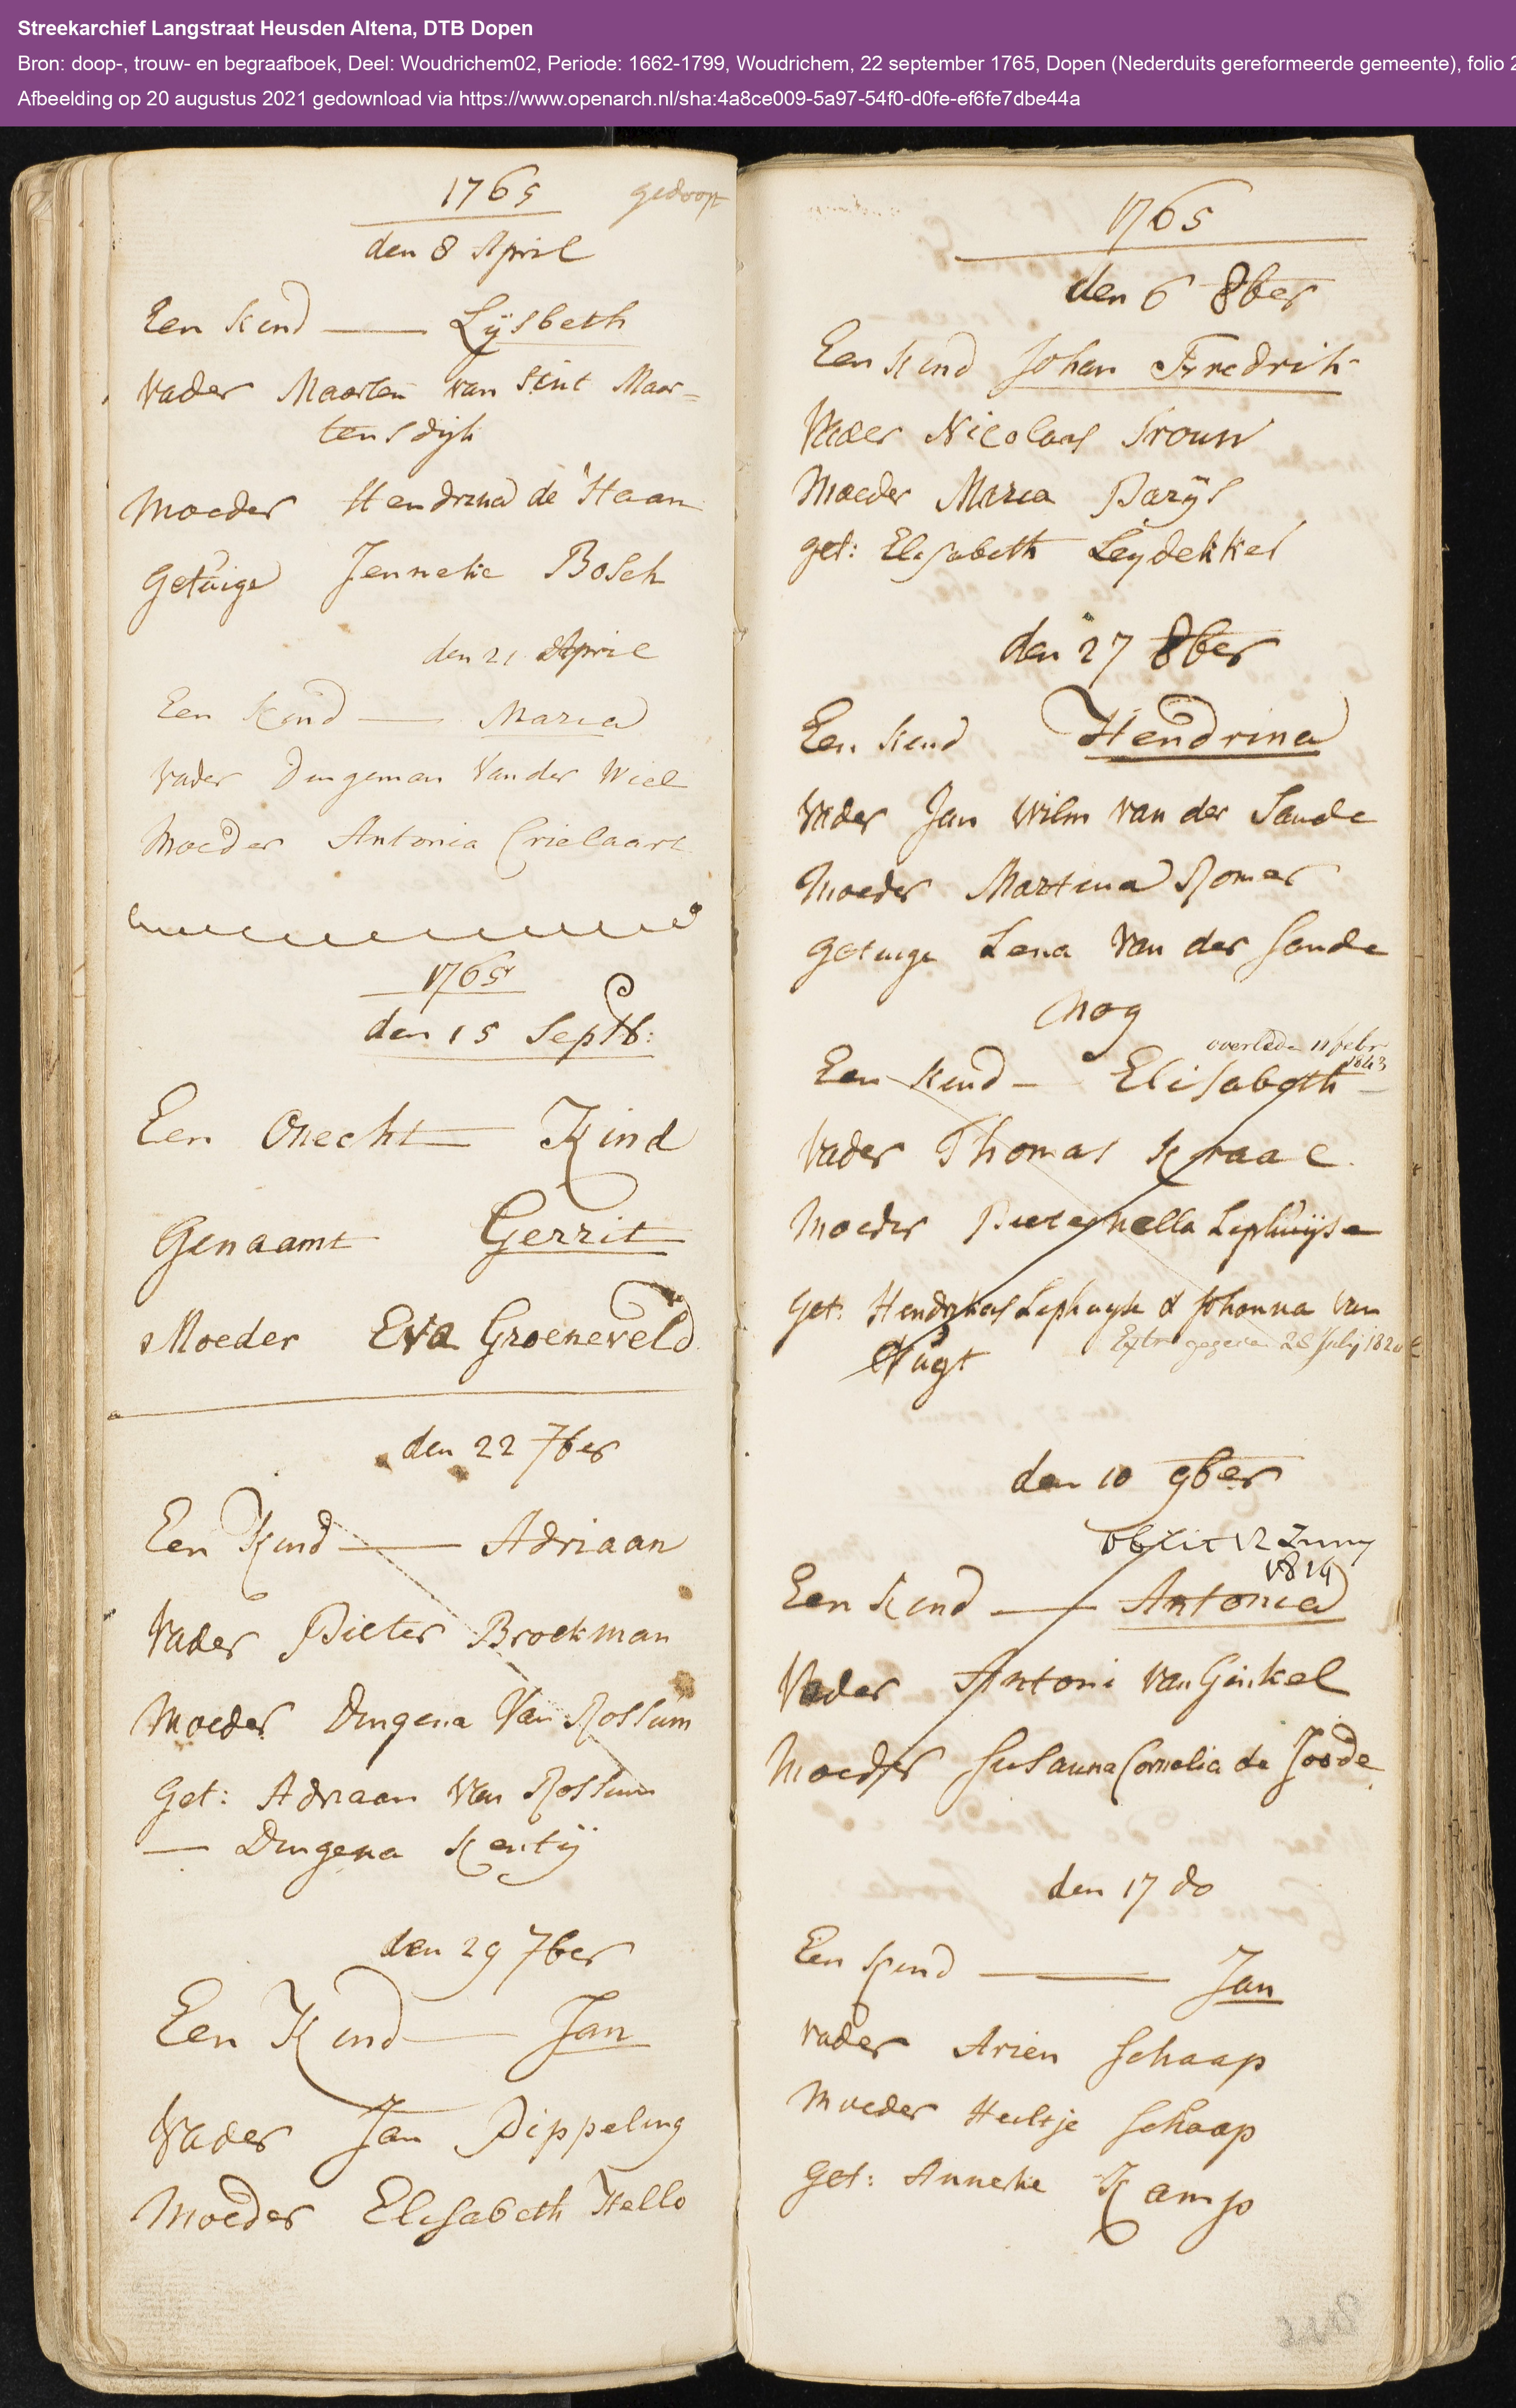 Streekarchief Langstraat Heusden Altena, DTB Dopen
Bron: doop-, trouw- en begraafboek, Deel: Woudrichem02, Periode: 1662-1799, Woudrichem, 22 september 1765, Dopen (Nederduits gereformeerde gemeente), folio 2
Afbeelding op 20 augustus 2021 gedownload via https://www.openarch.nl/sha:4a8ce009-5a97-54f0-d0fe-ef6fe7dbe44a
1765 gedoopt
den 8 April
Een kind — Lÿsbeth
Vader Maarten van Sint Maar=
tensdijk
Moeder Hendrina de Haan
Getuige Jenneke Bosch
den 21 April
Een kind — Maria
Vader Dingeman Van der Wiel
Moeder Antonia Crielaart
1765
den 15 Septb:
Een Onecht Kind
Genaamt Gerrit
Moeder Eva Groeneveld
den 22 7ber
Een Kind — Adriaan
Vader Pieter Broekman
Moeder Dingena Van Rossum
Get: Adriaan Van Rossum
— Dingena Kentÿ
den 29 7ber
Een Kind — Jan
Vader Jan Pippeling
Moeder Elisabeth Hello
1765
den 6 8ber
Een kind Johan Fredrik
Vader Nicolaas Trouw
Moeder Maria Parÿs
get: Elisabeth Leydekker
den 27 8ber
Een kind Hendrina
Vader Jan Wilm van der Sande
Moeder Martina Romer
getuige Lena Van der Sande
Nog
overleden 11 febr
1843
Een kind — Elisabeth —
Vader Thomas Kraal
Moeder Pieternella Liphuijse
Get: Hendrikus Liphuyse & Johanna van
Vugt
Extr gegeven 28 July 182
den 10 9ber
obiit 12 Juny
1814
Een kind — Antonia
Vader Antoni Van Ginkel
Moeder Susanna Cornelia de Joode
den 17 do
Een kind — Jan
Vader Arien Schaap
Moeder Heiltje Schaap
Get: Anneke Kamp